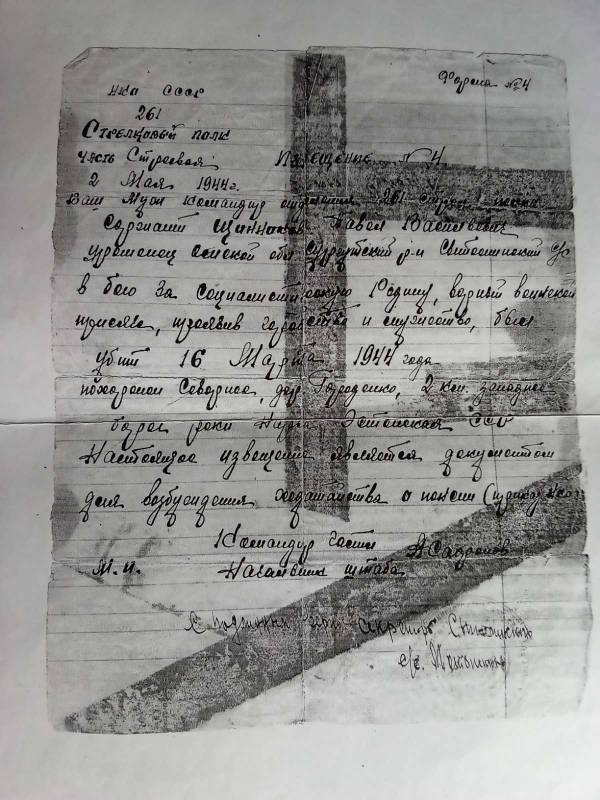 НКО СССР
Форма №4
261
Стрелковый полк
часть Строевая Извещение №4.
2 Мая 1944г.
Ваш Муж Командир отделения 261 стрел. полка
Сержант Павел Васильевич
уроженец Омской обл Сургутский р-н
в бою за Социалистическую Родину, верный воинской
присяге, проявив геройство и мужество, был
убит 16 Марта 1944 года
похоронен Севернее, дер. 2 км. западнее
берег реки Эстонская ССР
Настоящее извещение является документом
для возбуждения ходатайства о пенсии
Командир части
М.П. Начальник штаба
С подлинным верно